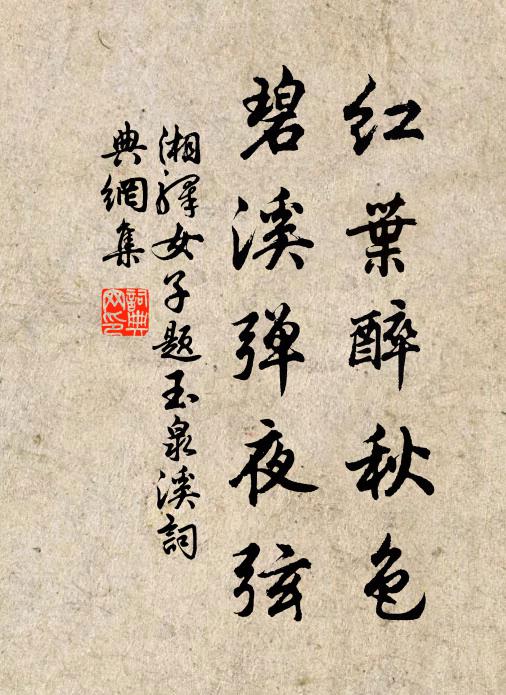 红葉醉秋色
碧溪弹夜弦
湘驛女子題玉泉溪詞
典網集
詞典
网印